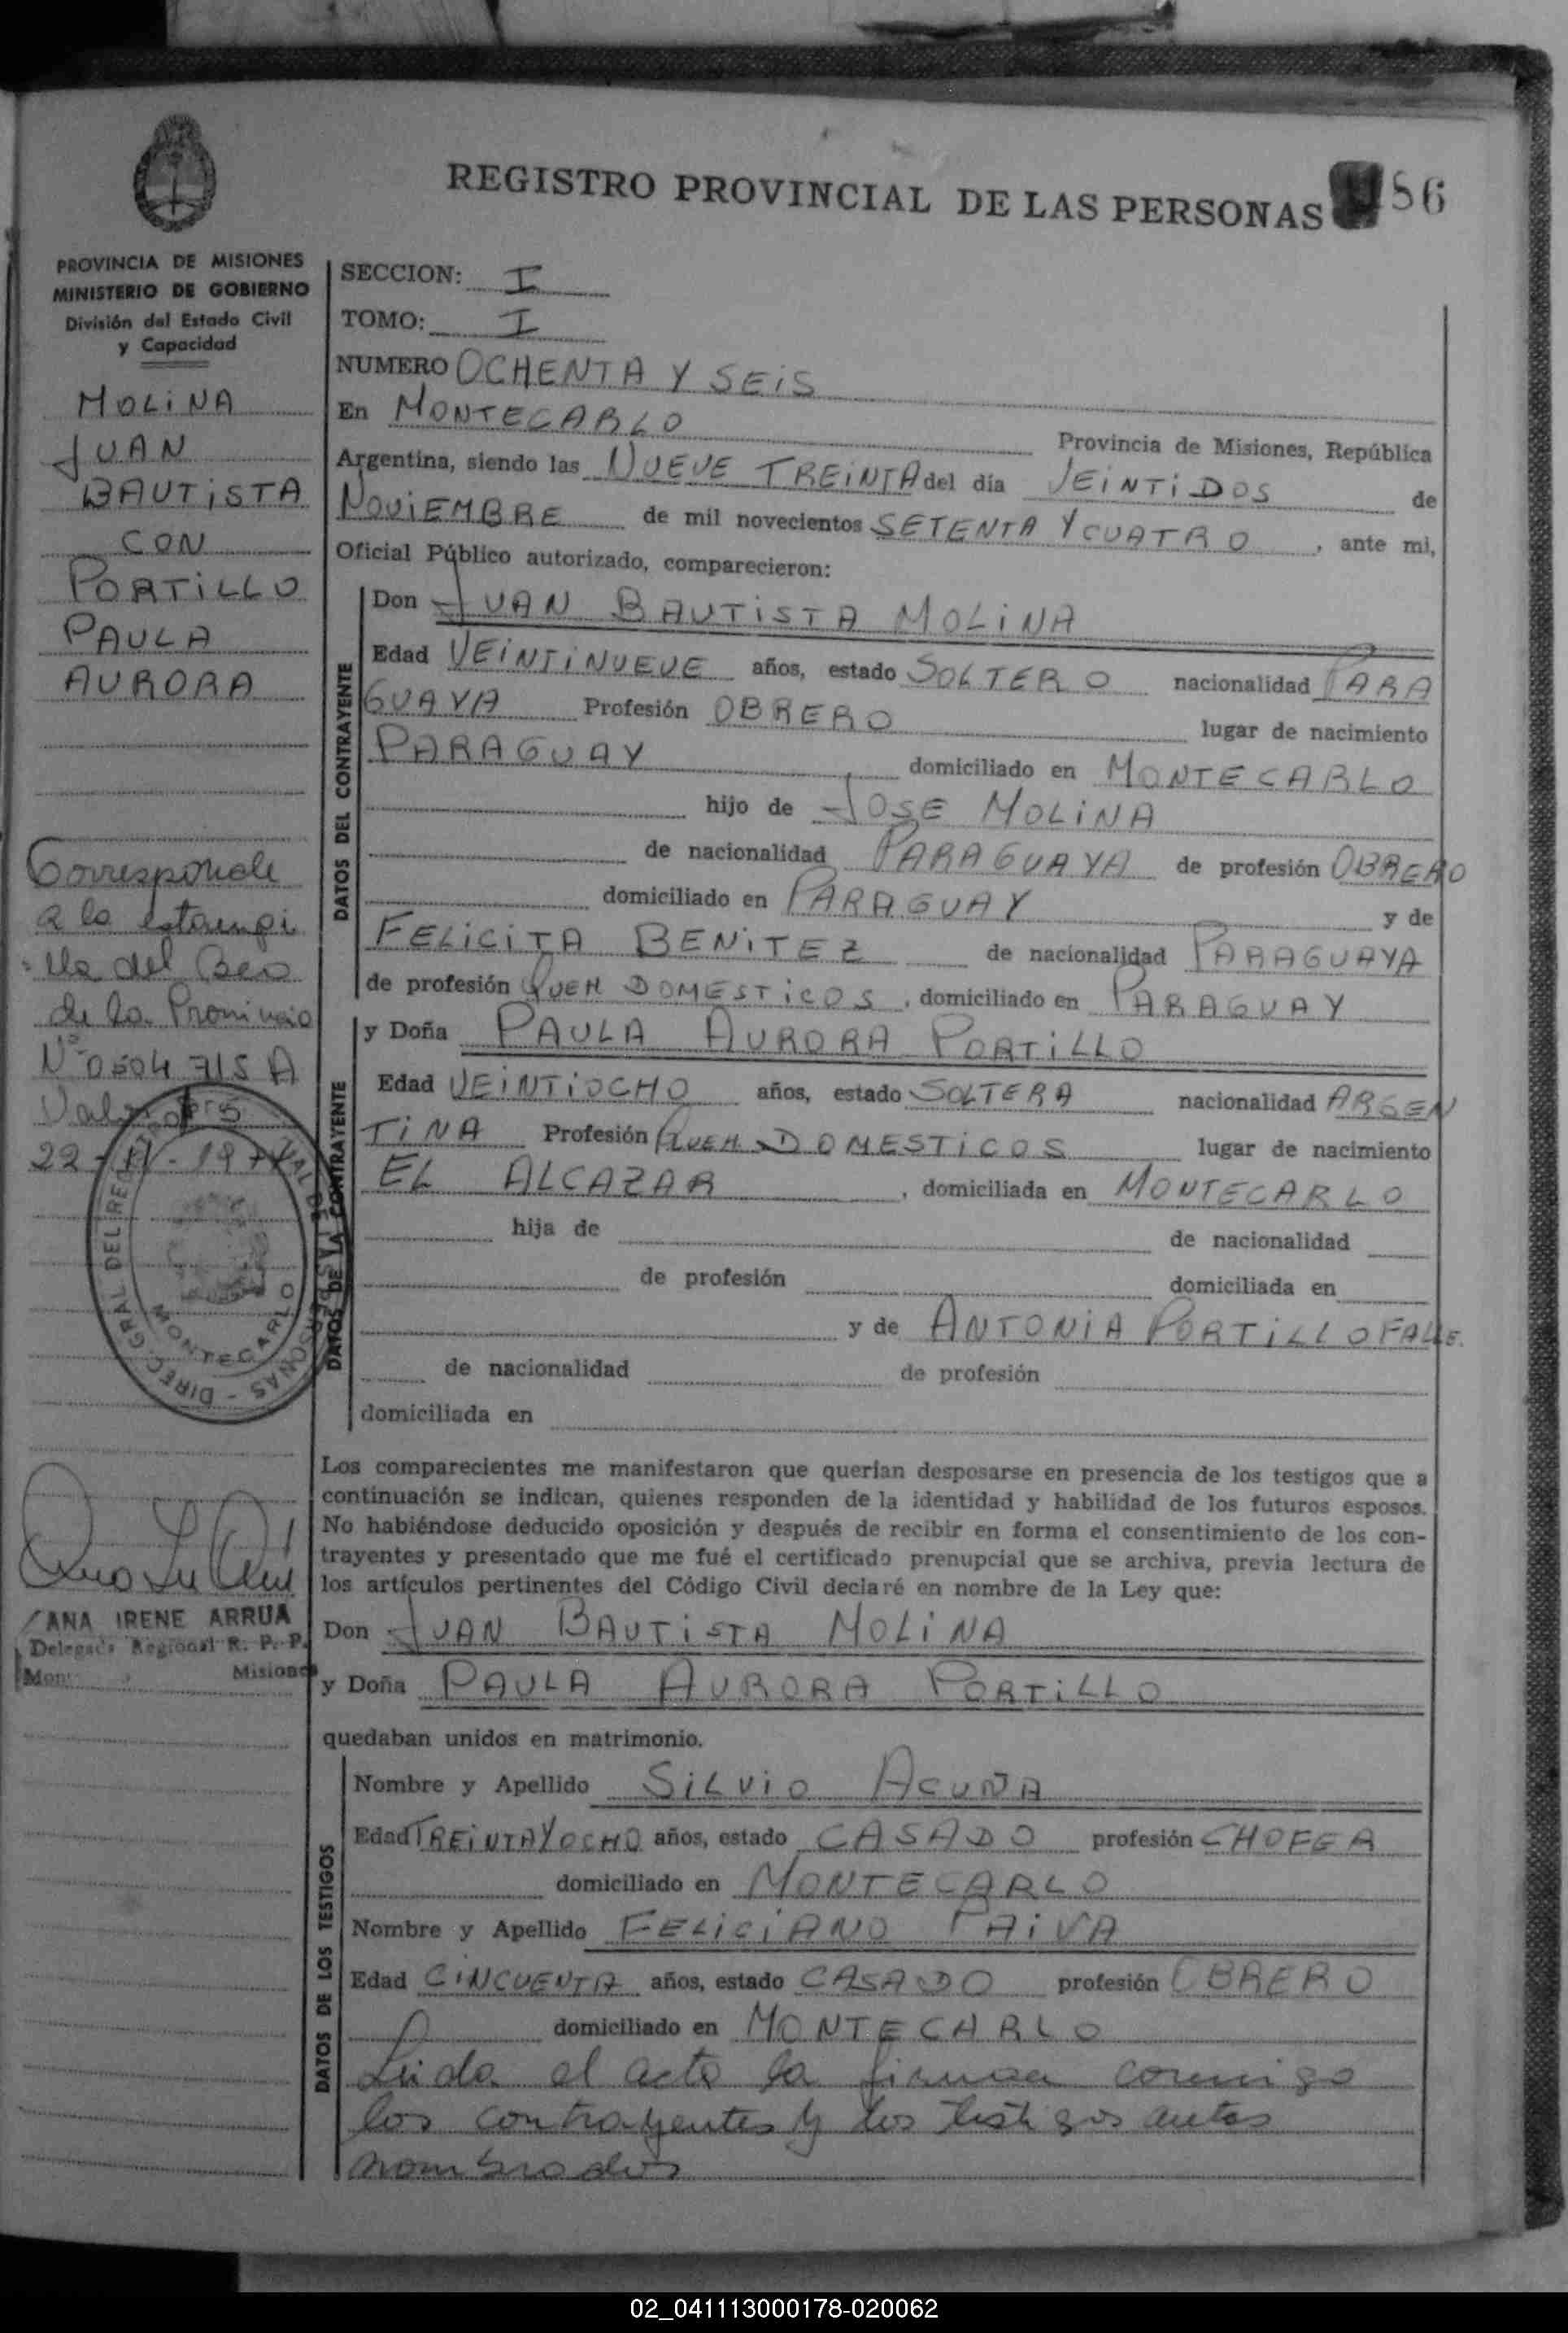 REGISTRO PROVINCIAL DE LAS PERSONAS 86
PROVINCIA DE MISIONES
MINISTERIO DE GOBIERNO
División del Estado Civil
y Capacidad
MOLINA
JUAN
BAUTISTA
CON
PORTILLO
PAULA
AURORA
Corresponde
a la estampi
lla del Bco
de la Provincia
Nº 0504715 A
Valor
22-XI-1974
DIREC. GRAL DEL REG PERSONAS
MONTECARLO
ANA IRENE ARRUA
Delegada Regional R. P. P.
Misiones
SECCION: I
TOMO: I
NUMERO OCHENTA Y SEIS
En MONTECARLO Provincia de Misiones, República
Argentina, siendo las NUEVE TREINTA del día VEINTIDOS de
NOVIEMBRE de mil novecientos SETENTA Y CUATRO, ante mi,
Oficial Público autorizado, comparecieron:
DATOS DEL CONTRAYENTE
Don JUAN BAUTISTA MOLINA
Edad VEINTINUEVE años, estado SOLTERO nacionalidad PARA
GUAYA Profesión OBRERO lugar de nacimiento
PARAGUAY domiciliado en MONTECARLO
hijo de JOSE MOLINA
de nacionalidad PARAGUAYA de profesión OBRERO
domiciliado en PARAGUAY y de
FELICITA BENITEZ de nacionalidad PARAGUAYA
de profesión QUEH DOMESTICOS, domiciliado en PARAGUAY
DATOS DE LA CONTRAYENTE
y Doña PAULA AURORA PORTILLO
Edad VEINTIOCHO años, estado SOLTERA nacionalidad ARGEN
TINA Profesión QUEH. DOMESTICOS lugar de nacimiento
EL ALCAZAR, domiciliada en MONTECARLO
hija de de nacionalidad
de profesión domiciliada en
y de ANTONIA PORTILLO FALLE.
de nacionalidad de profesión
domiciliada en
Los comparecientes me manifestaron que querían desposarse en presencia de los testigos que a
continuación se indican, quienes responden de la identidad y habilidad de los futuros esposos.
No habiéndose deducido oposición y después de recibir en forma el consentimiento de los con-
trayentes y presentado que me fué el certificado prenupcial que se archiva, previa lectura de
los artículos pertinentes del Código Civil declaré en nombre de la Ley que:
Don JUAN BAUTISTA MOLINA
y Doña PAULA AURORA PORTILLO
quedaban unidos en matrimonio.
DATOS DE LOS TESTIGOS
Nombre y Apellido SILVIO ACUÑA
Edad TREINTA Y OCHO años, estado CASADO profesión CHOFER
domiciliado en MONTECARLO
Nombre y Apellido FELICIANO PAIVA
Edad CINCUENTA años, estado CASADO profesión OBRERO
domiciliado en MONTECARLO
Leida el acta la firman conmigo
los contrayentes y los testigos antes
nombrados
02_041113000178-020062